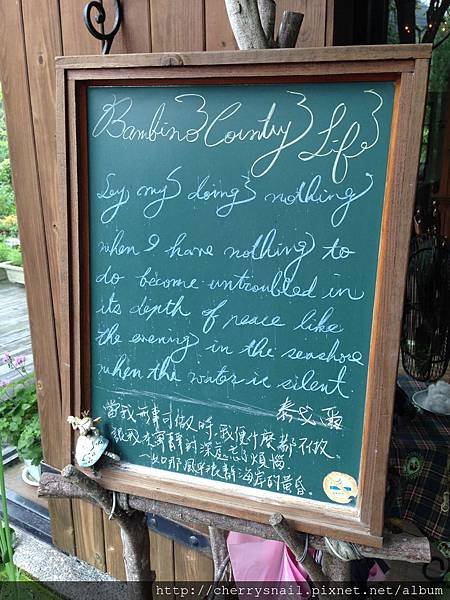 Bambino Country Life
Let my doing nothing
when I have nothing to
do become untroubled in
its depth of peace like
the evening in the seashore
when the water is silent
泰戈爾
當我無事可做時,我便什麼都不做,
讓我在寧靜的深煩惱.
一如那風平浪靜海岸的黃昏.
http://cherrysnail.pixnet.net/album